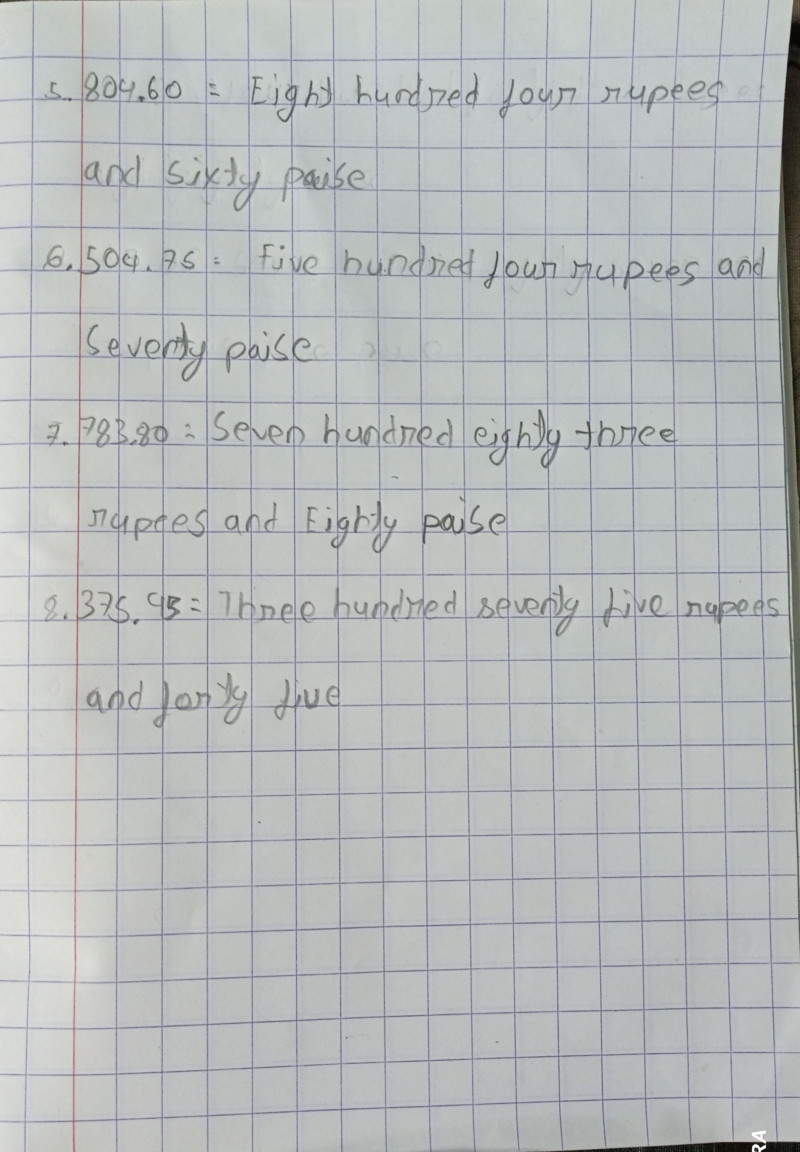 5. 804.60 = Eight hundred four rupees
and sixty paise
6. 504.75 = five hundred four rupees and
Seventy paise
7. 783.80 = Seven hundred eighty three
rupees and Eighty paise
8. 375.45 = Three hundred seventy five rupees
and forty five
RA